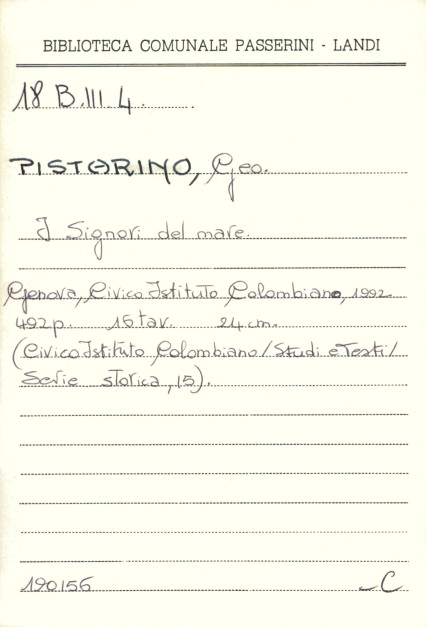 BIBLIOTECA COMUNALE PASSERINI - LANDI
18 B.III.4.
PISTARINO, Geo.
I Signori del mare.
Genova, Civico Istituto Colombiano, 1992.
492 p. 16 tav. 24 cm.
(Civico Istituto Colombiano/Studi e Testi/
Serie storica, 15).
190156 C